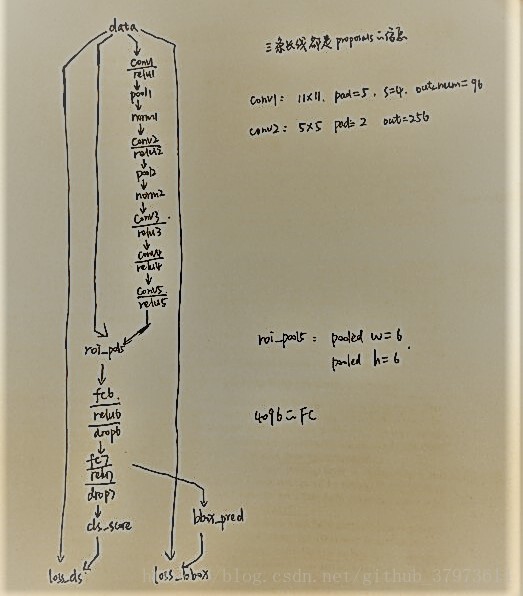 data
三条长线都是proposals的信息
conv1
relu1
pool1
norm1
conv1: 11×11, pad=5, s=4, outnum=96
conv2: 5×5 pad=2 out=256
conv2
relu2
pool2
norm2
conv3
relu3
conv4
relu4
conv5
relu5
roi_pool5
roi_pool5: pooled w=6
pooled h=6.
fc6
relu6
drop6
4096的FC
fc7
relu7
drop7
cls_score
bbox_pred
loss_cls
loss_bbox
blog.csdn.net/github_3797361